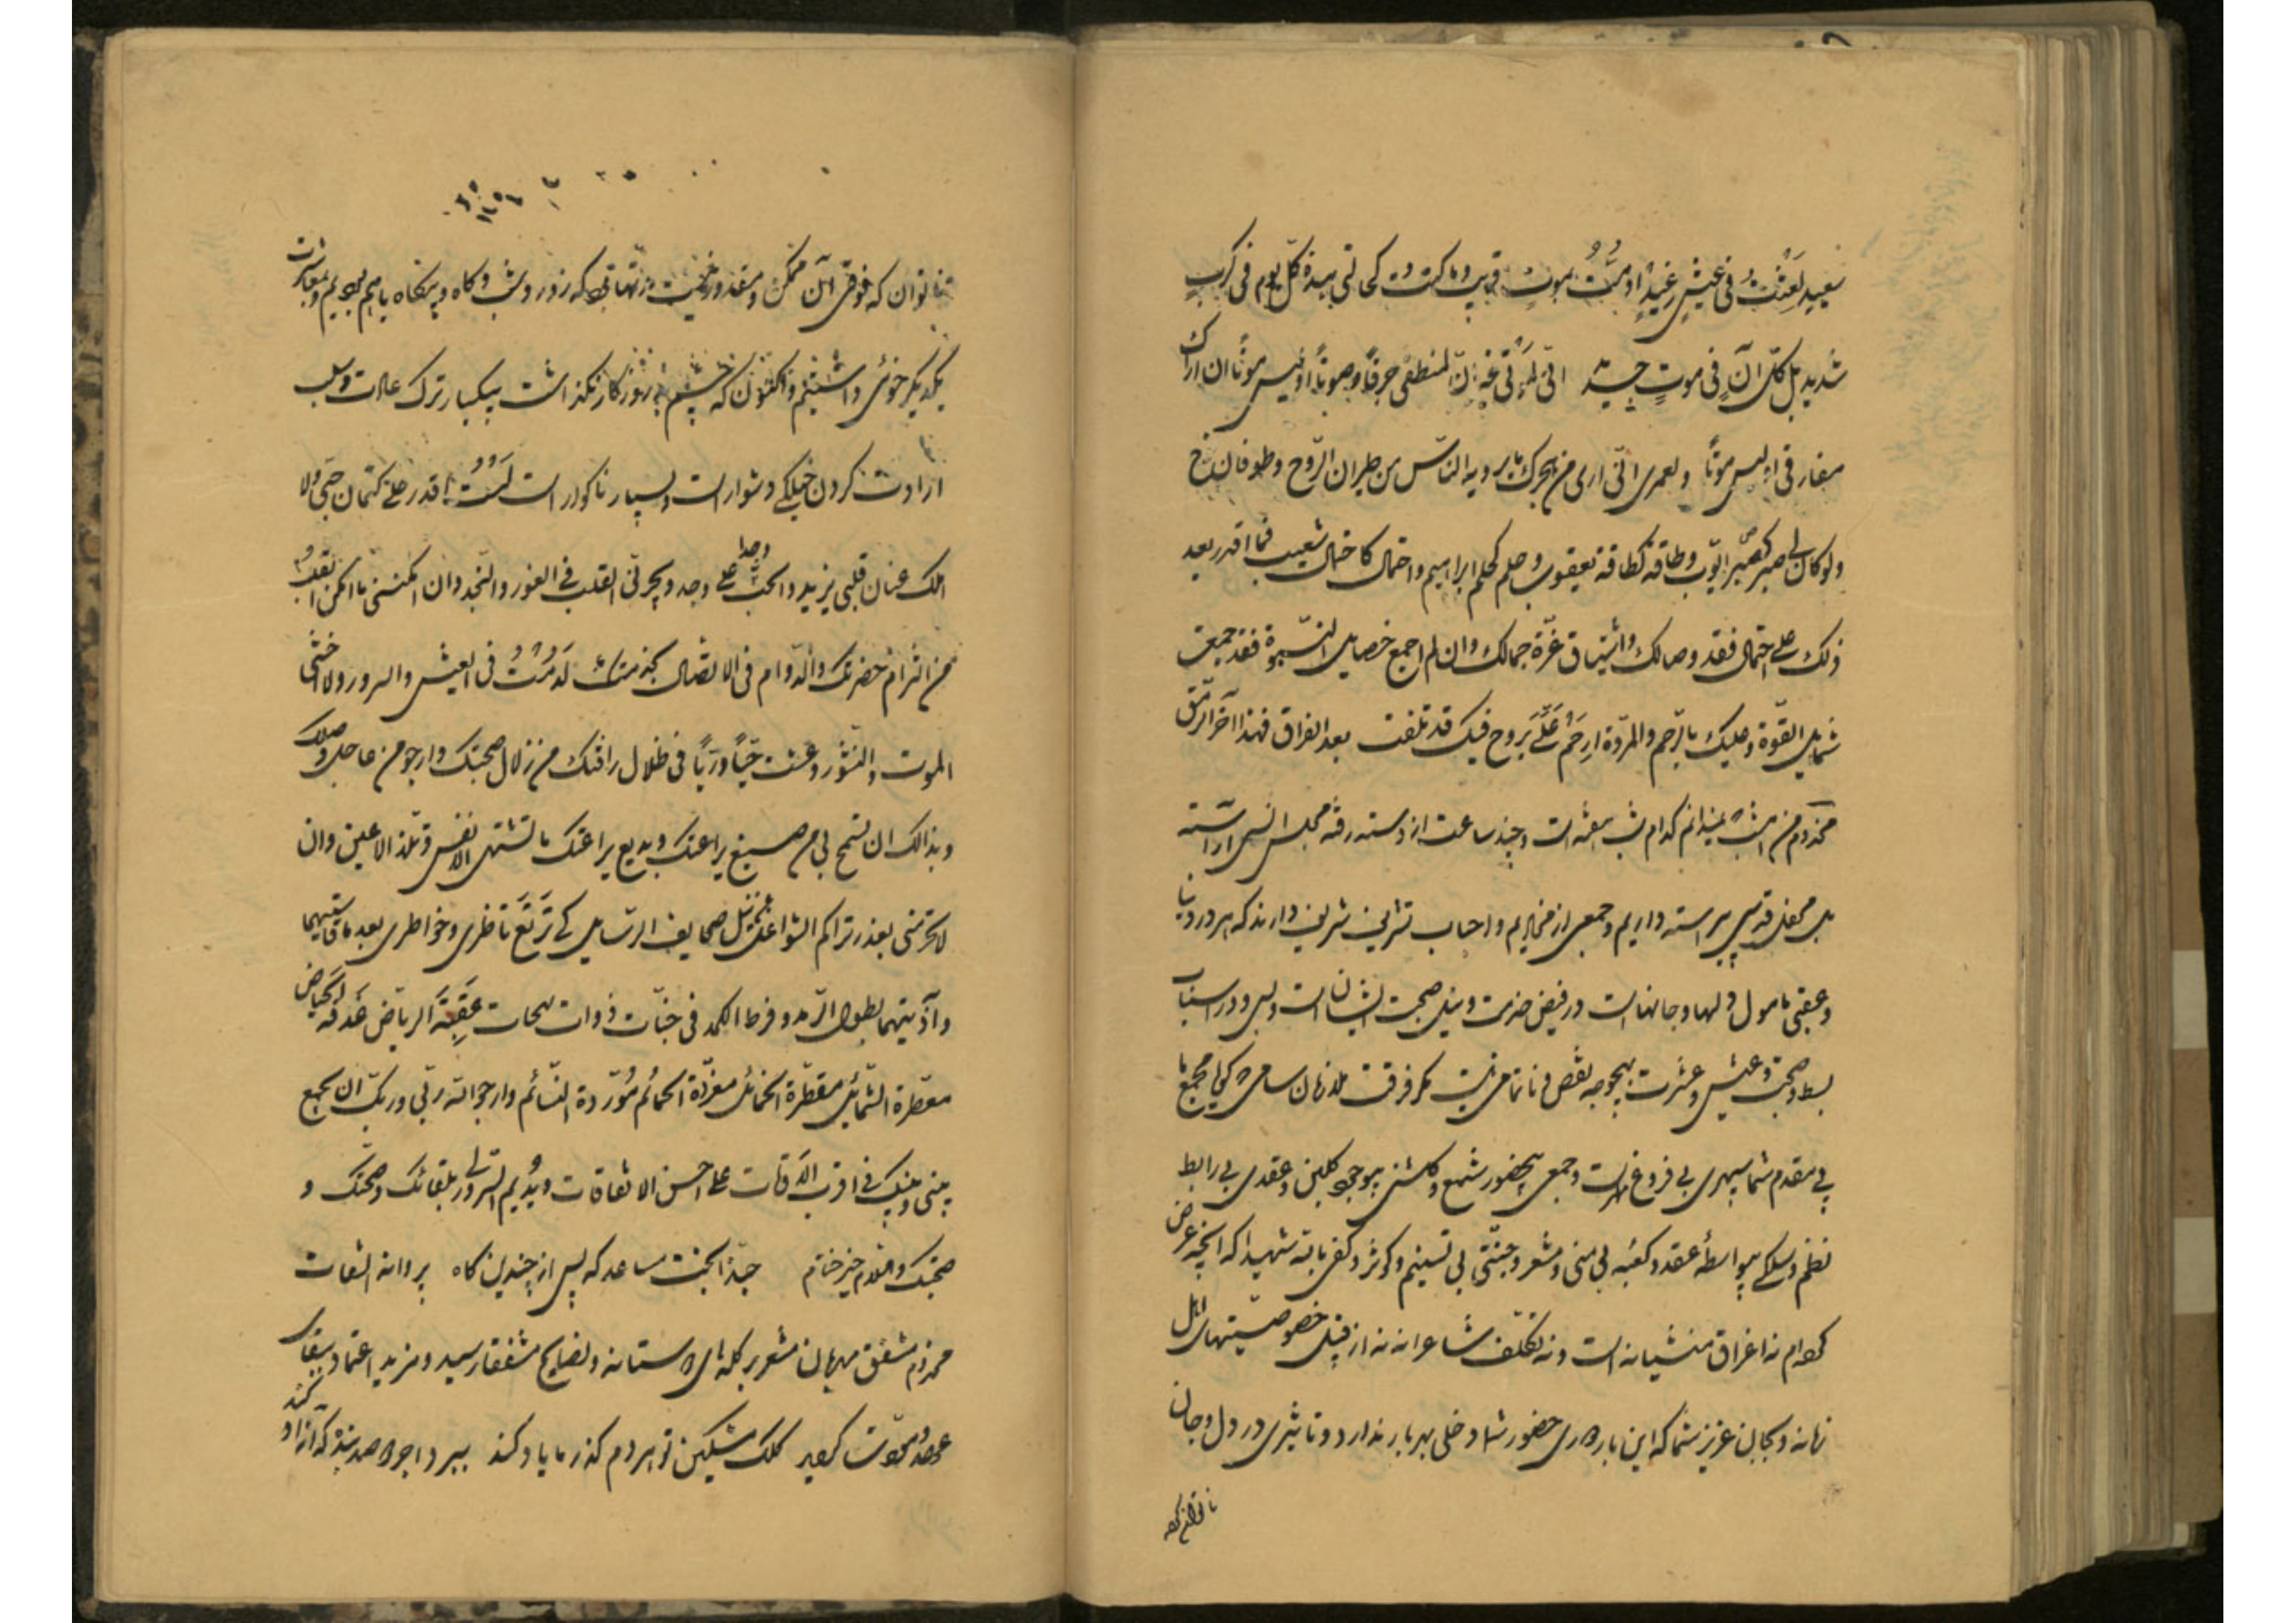 سعید لعشت فی عیش رغید او مت بموت قریب و ما کنت کحالتی هذه کل یوم فی کرب
شدید بل کل آن فی موت جدید انی لم
مفارقی او لیس موتا و لعمری انی اری من هجرک ما لم یره الناس من طیران الروح و طوفان نوح
ولو کان لی صبر کصبر ایوب و طاقة کطاقة یعقوب و حلم کحلم ابراهیم و احتمال کاحتمال شعیب فما اقدر بعد
ذلک علی احتمال فقد وصالک و اشتیاق غرة جمالک و ان لم اجمع خصایل النبوة فقد جمعت
شمایل القوة و علیک بالرحم و المروة ارحم علی بروح فیک قد تلفت بعد الفراق فهذا آخر الرمق
مخدوم من امشب نمیدانم کدام شب هفته است و چند ساعت از دسته رفته مجلس انسی آراسته
بل محفل قدسی پیراسته داریم و جمعی از مخادیم و احباب تشریف شریف دارند که هر دو دنیا
و عقبی مامول دلها و جانهاست در فیض خدمت و نیل صحبت ایشان است و بس و در اسباب
بسط و صحبت و عیش و عشرت بهیچوجه نقص و ناتمامی نیست مگر فرقت ملازمان سامی که گویا مجمع ما
بی مقدم شما سپهری بی فروغ مهر است و جمعی بیحضور شمع و گلشنی بیوجود گلبن و عقدی بی رابط
نظم و سلکی بیواسطه عقد و کعبه بی منی و مشعر و جنتی بی تسنیم و کوثر و کفی بالله شهیدا که آنچه عرض
کردم نه اغراق منشیانه است و نه تکلف شاعرانه نه از قبیل خصوصیتهای اهل
زمانه و بجان عزیز شما که این بار دوری حضور شما دخلی بهر بار ندارد و تاثیری در دل و جان
ما توان کرد
ما توان که فوق آن ممکن و مقدور نیست مدتها بود که روز و شب و گاه و بیگاه باهم بودیم و بمعاشرت
یکدیگر خوئی داشتیم و اکنون که چشم بد روزگار نگذاشت بیکبار ترک عادت و سلب
ارادت کردن خیلکی دشوار است و بسیار ناگوار است لست اقدر علی کتمان حبی ولا
املک عنان قلبی یزید و الحب وجدا علی وجد و یجرنی القلب فی الغور و النجد و ان امکننی ما امکن القلب
من التزام حضرتک و الدوام فی الاتصال بخدمتک لدمت فی العیش و السرور ولا اخشی
الموت و النشور و عشت حیا و ریا فی ظلال رافتک من زلال صحبتک و ارجو من عاجل وصلک
و بذالک ان تسمح لی من صبیغ یراعتک و بدیع براعتک ما تشتهی الانفس و تلذ الاعین و ان
لا تحرمنی بعذر تراکم الشواغل عن نیل صحایف الرسایل کی ترتع ناظری و خواطری بعد ما
و آذیتهما بطول الرمد و فرط الکمد فی جنات ذوات بهجات عبقة الریاض غدقة الحیاض
معطرة الشمائل مقطرة الخمائل مغردة الحمائم موردة النسائم و ارجو الله ربی و ربک ان یجمع
بینی و بینک فی اقرب الاوقات علی احسن الاتفاقات و یدیم لی السرور بلقائک و صحتک و
صحبتک و السلام خیر ختام حبذا بخت مساعد که پس از چندین گاه پروانه التفات
مخدوم مشفق مهربان مشعر بر گله های دوستانه و نصایح مشفقانه رسید و مزید اعتماد ببقای
عهد و مودت گردید کلک مشکین تو هر دم که ز ما یاد کند ببرد اجر دو صد بنده که آزاد کند